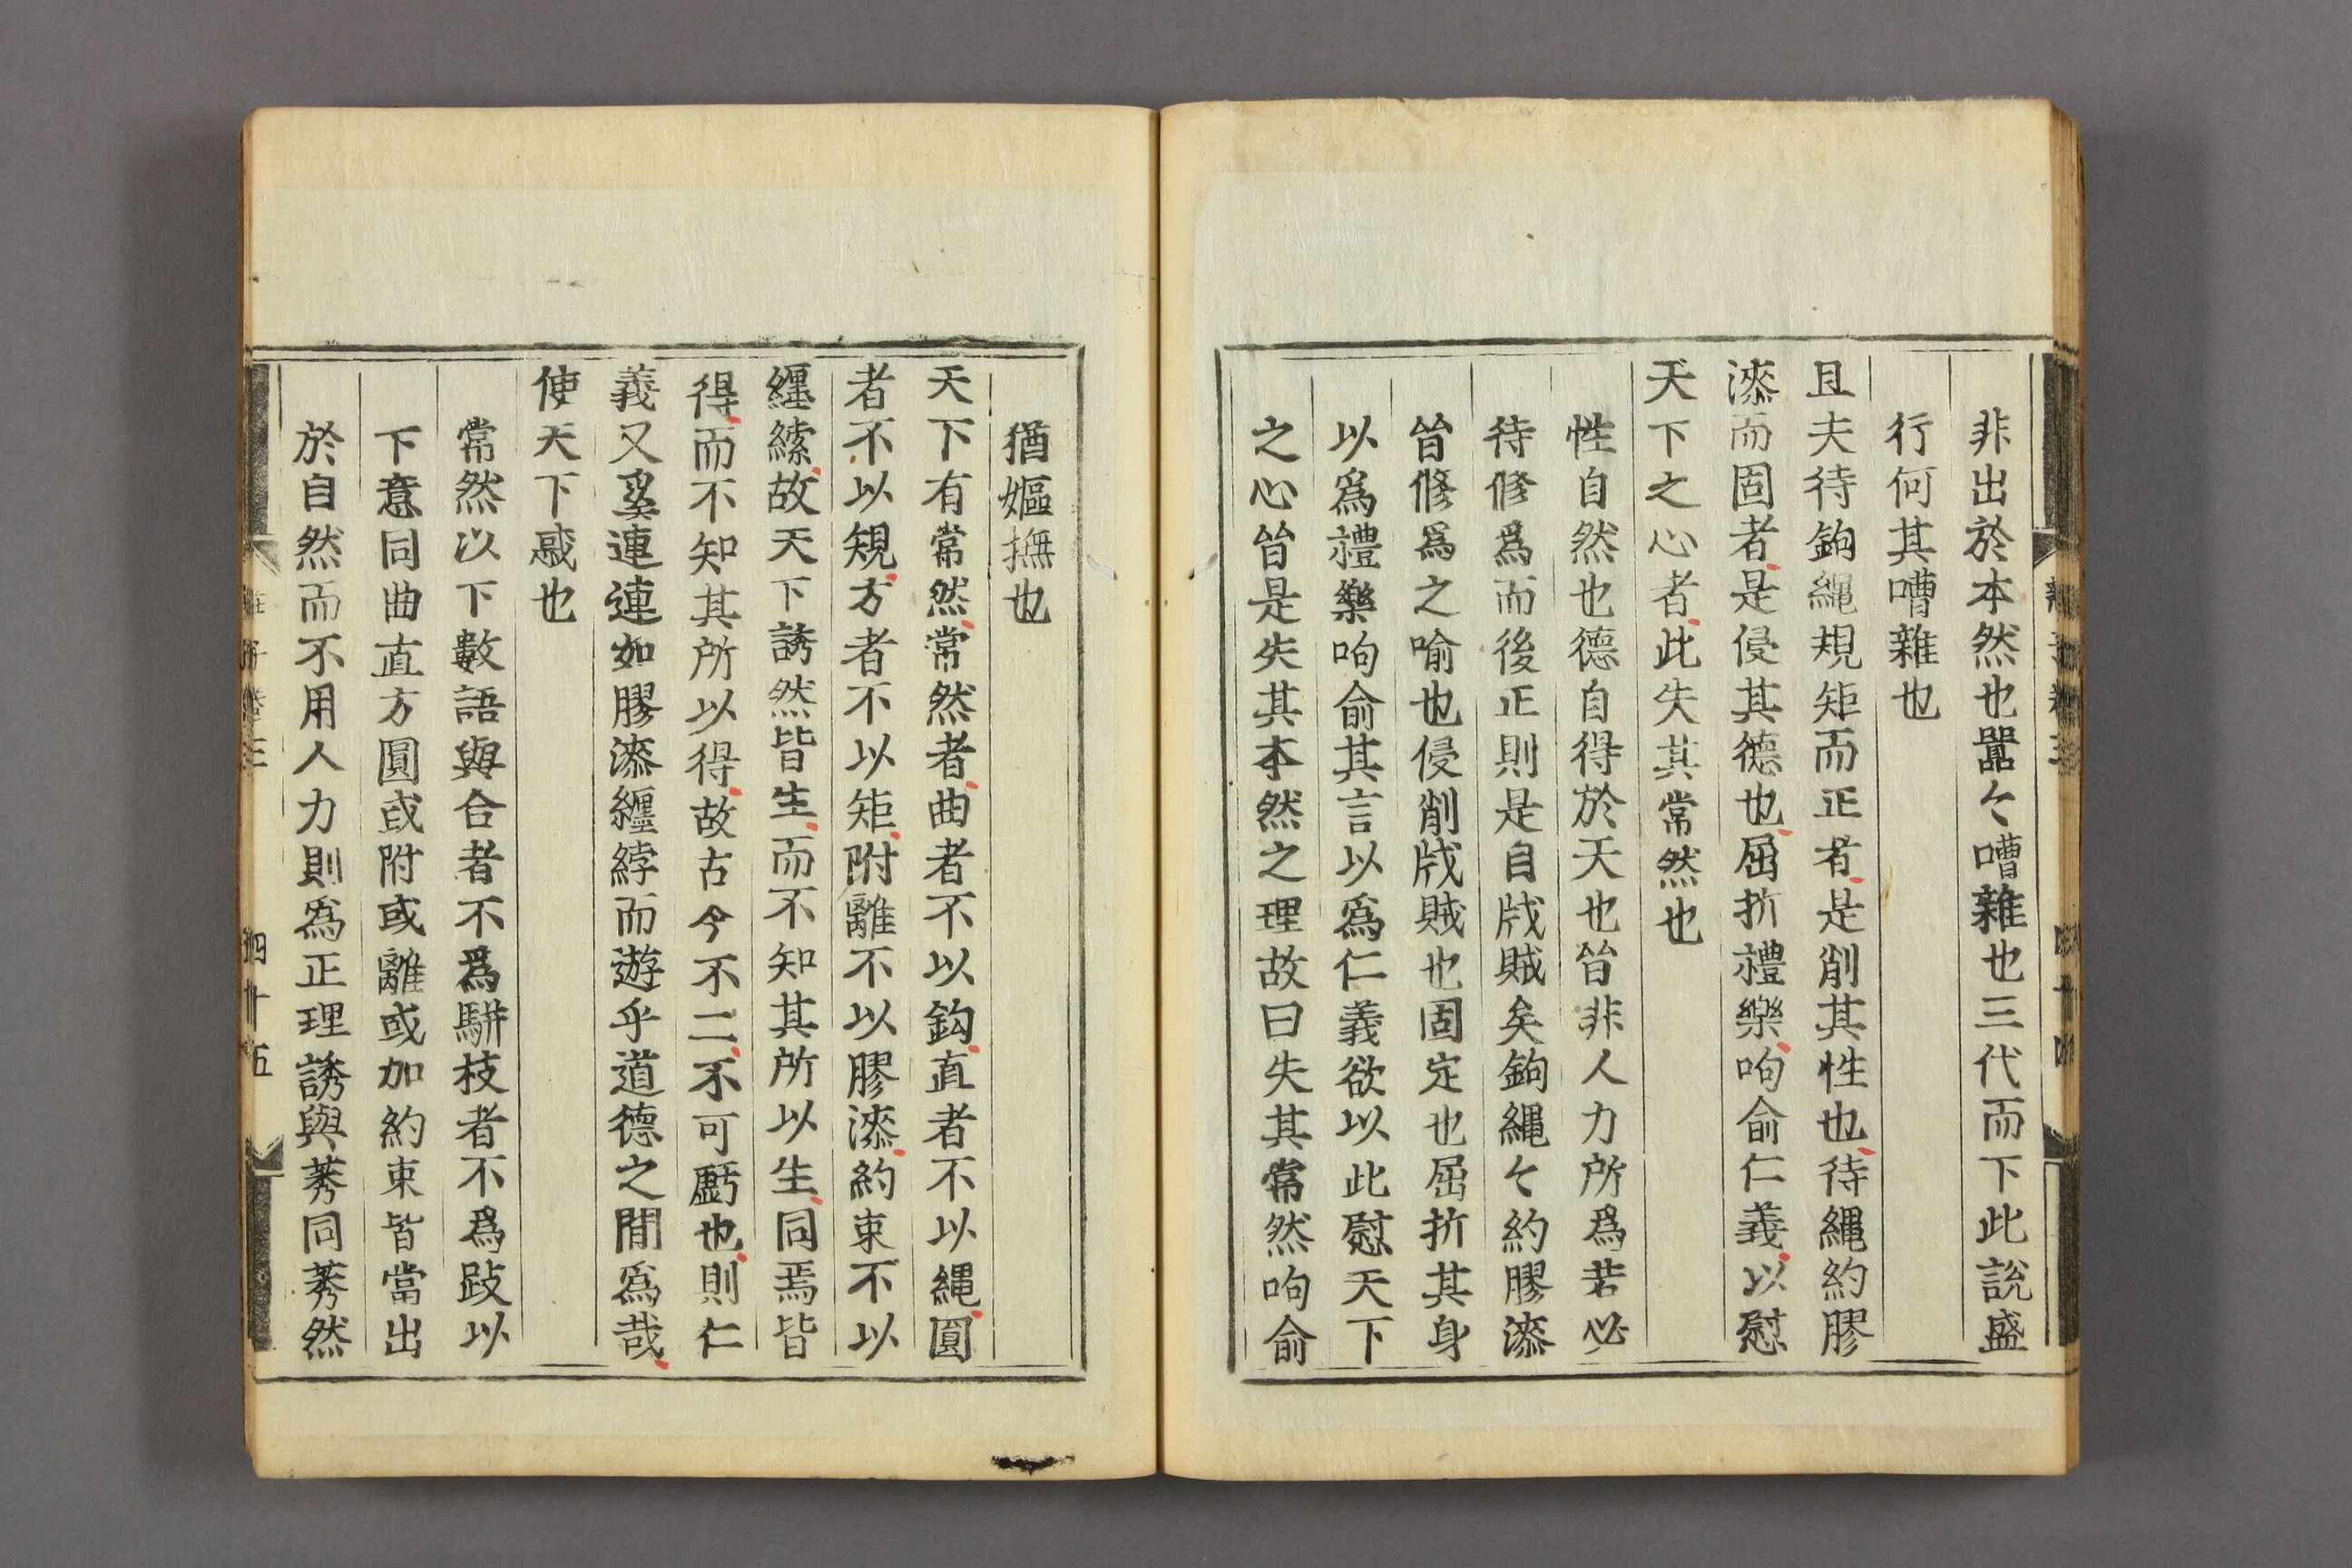 非出於本然也嚚々嘈雜也三代而下此說盛
行何其嘈雜也
且夫待鉤繩規矩而正者是削其性也待繩約膠
漆而固者是侵其德也屈折禮樂呴俞仁義以慰
天下之心者此失其常然也
性自然也德自得於天也皆非人力所爲若必
待修爲而後正則是自戕賊矣鉤繩々約膠漆
皆修爲之喻也侵削戕賊也固定也屈折其身
以爲禮樂呴俞其言以爲仁義欲以此慰天下
之心皆是失其本然之理故曰失其常然呴俞
猶嫗撫也
天下有常然常然者曲者不以鈎直者不以繩圓
者不以規方者不以矩附離不以膠漆約束不以
纆索故天下誘然皆生而不知其所以生同焉皆
得而不知其所以得故古今不二不可虧也則仁
義又奚連連如膠漆纆索而遊乎道德之間爲哉
使天下惑也
常然以下數語與合者不爲駢枝者不爲跂以
下意同曲直方圓或附或離或加約束皆當出
於自然而不用人力則爲正理誘與莠同莠然
四十五